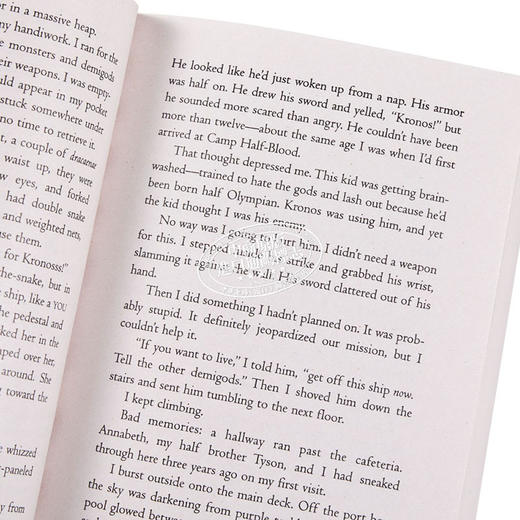 or in a massive heap.
my handiwork. I ran for the
e monsters and demigods
eir weapons. I was empty-
ould appear in my pocket
stuck somewhere under
no time to retrieve it.
, a couple of dracaenae
waist up, they were
w eyes, and forked
had double snake
and weighted nets,
use them.
for Kronosss!"
the-snake, but in
e ship, like a YOU
he pedestal and
ked her in the
aped over her,
around. She
g toward the
e whizzed
-paneled
ay from
He looked like he'd just woken up from a nap. His armor
was half on. He drew his sword and yelled, "Kronos!" but
he sounded more scared than angry. He couldn't have been
more than twelve—about the same age I was when I'd first
arrived at Camp Half-Blood.
That thought depressed me. This kid was getting brain-
washed—trained to hate the gods and lash out because he'd
been born half Olympian. Kronos was using him, and yet
the kid thought I was his enemy.
No way was I going to hurt him. I didn't need a weapon
for this. I stepped inside his strike and grabbed his wrist,
slamming it against the wall. His sword clattered out of his
hand.
Then I did something I hadn't planned on. It was prob-
ably stupid. It definitely jeopardized our mission, but I
couldn't help it.
"If you want to live," I told him, "get off this ship now.
Tell the other demigods." Then I shoved him down the
stairs and sent him tumbling to the next floor.
I kept climbing.
Bad memories: a hallway ran past the cafeteria.
Annabeth, my half brother Tyson, and I had sneaked
through here three years ago on my first visit.
I burst outside onto the main deck. Off the port bo
the sky was darkening from purple to bl
pool glowed between